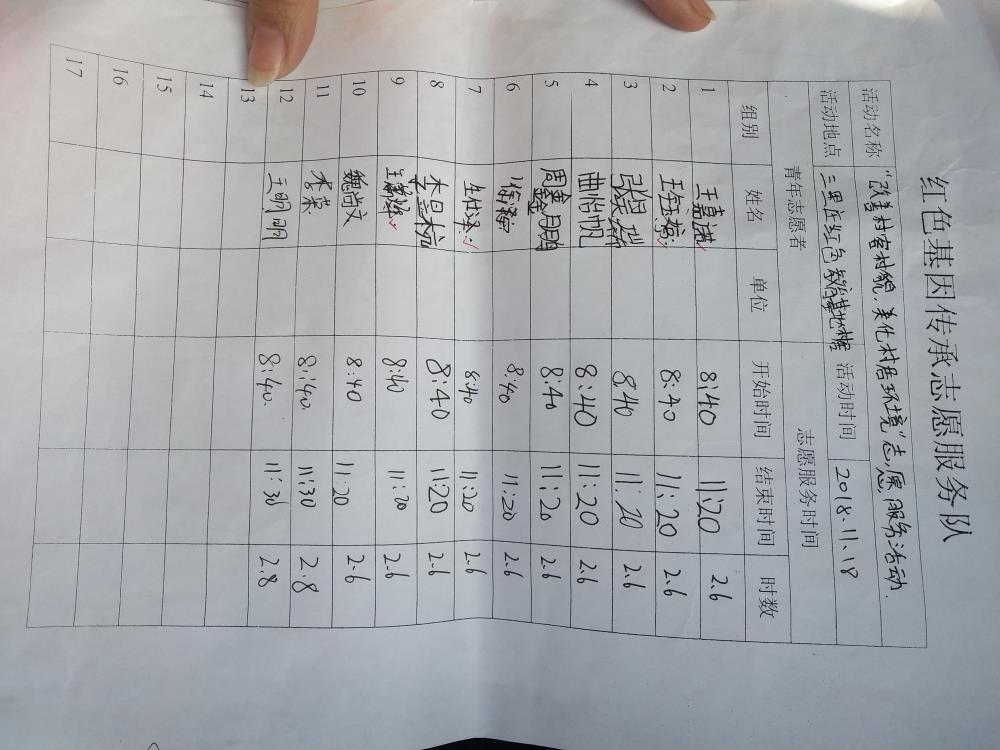 红色基因传承志愿服务队
活动名称 “改善村容村貌,美化村居环境”志愿服务活动.
活动地点 三里庄红色 活动时间 2018.11.18
青年志愿者 志愿服务时间
组别 姓名 单位 开始时间 结束时间 时数
1 王嘉 8:40 11:20 2.6
2 8:40 11:20 2.6
3 8:40 11:20 2.6
4 曲怡帆 8:40 11:20 2.6
5 周鑫明 8:40 11:20 2.6
6 8:40 11:20 2.6
7 8:40 11:20 2.6
8 8:40 11:20 2.6
9 8:40 11:20 2.6
10 魏尚文 8:40 11:20 2.6
11 李荣 8:40 11:30 2.8
12 王明明 8:40. 11:30 2.8
13
14
15
16
17